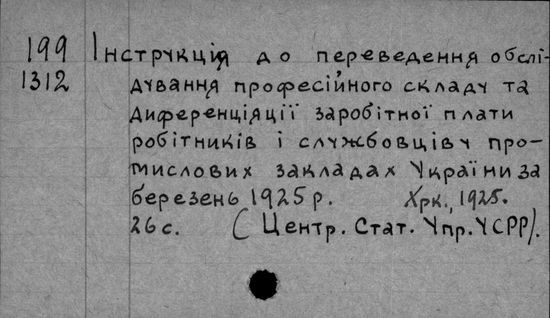 199 Інструкція до переведення обслі-
1312 дування професійного складу та
диференціяції заробітної плати
робітників і службовців у про-
мислових закладах України за
березень 1925 р. Хрк., 1925.
26 с. (Центр. Стат. Упр. УСРР).